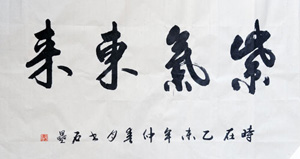 紫氣東来
時在乙未年仲夏月書石壘